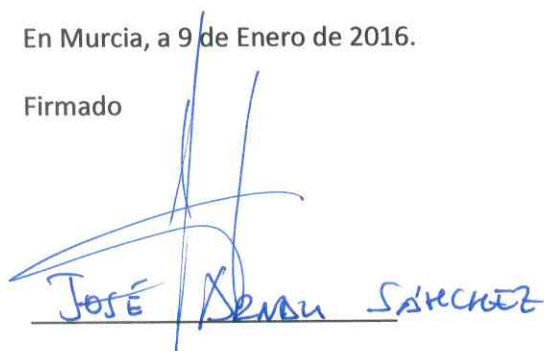 En Murcia, a 9 de Enero de 2016.
Firmado
JOSÉ ARNAU SÁNCHEZ